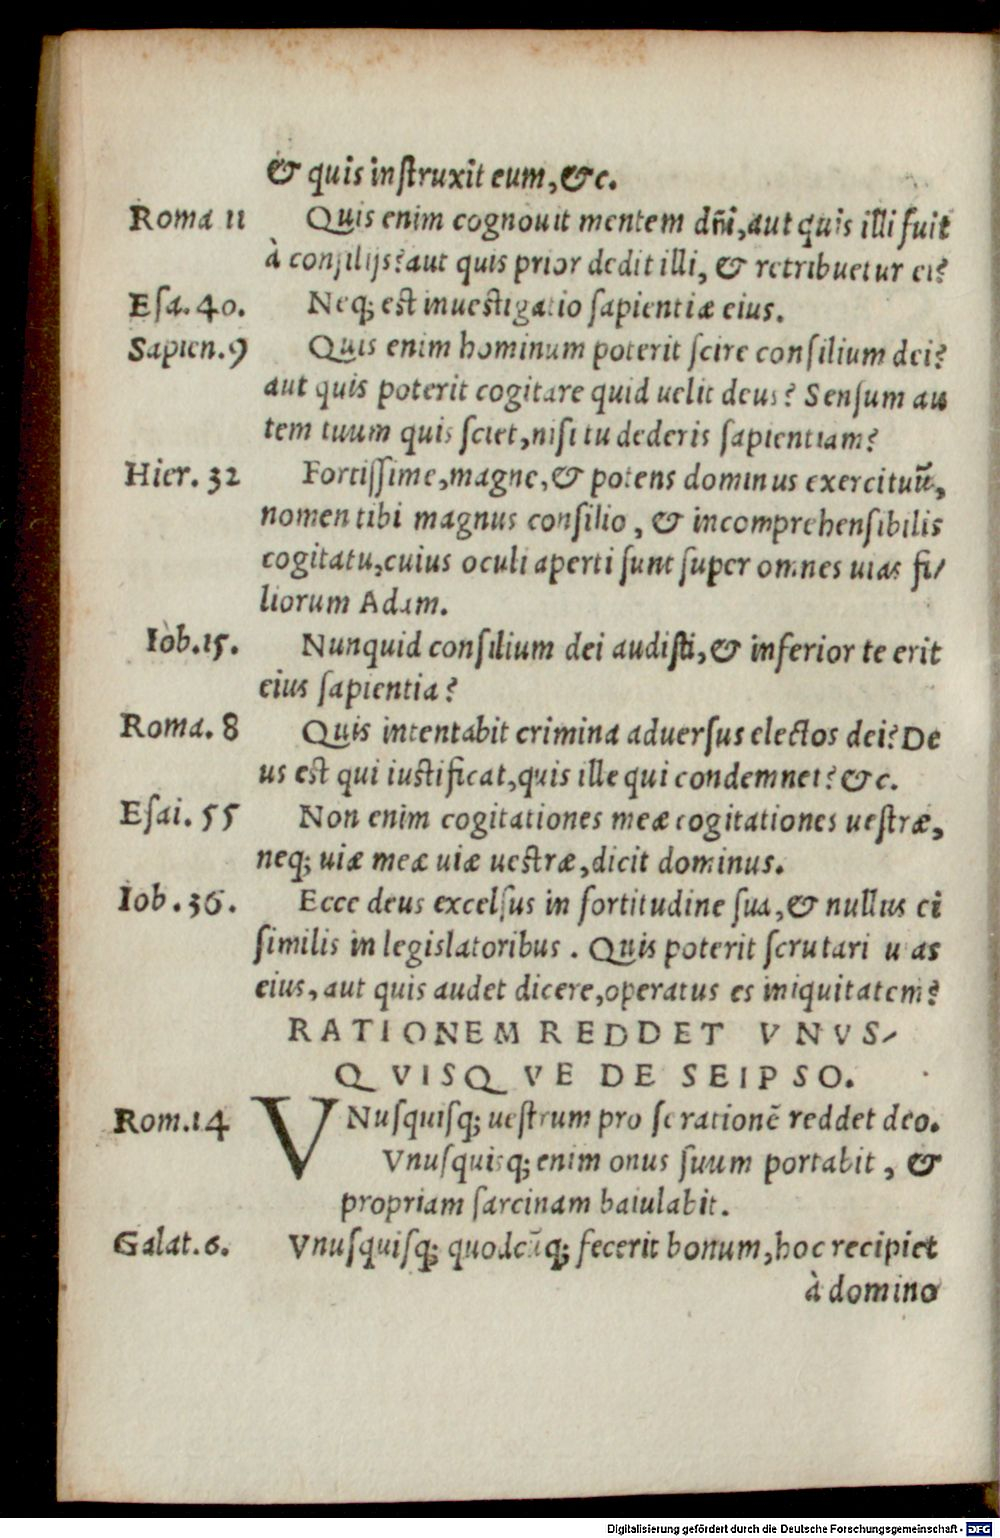 & quis instruxit eum, &c.
Roma 11 Quis enim cognouit mentem dñi, aut quis illi fuit
à consilijs? aut quis prior dedit illi, & retribuetur ei?
Esa. 40. Neq; est inuestigatio sapientiæ eius.
Sapien. 9 Quis enim hominum poterit scire consilium dei?
aut quis poterit cogitare quid uelit deus? Sensum au
tem tuum quis sciet, nisi tu dederis sapientiam?
Hier. 32 Fortissime, magne, & potens dominus exercituū,
nomen tibi magnus consilio, & incomprehensibilis
cogitatu, cuius oculi aperti sunt super omnes uias fi/
liorum Adam.
Iob. 15. Nunquid consilium dei audisti, & inferior te erit
eius sapientia?
Roma. 8 Quis intentabit crimina aduersus electos dei? De
us est qui iustificat, quis ille qui condemnet? &c.
Esai. 55 Non enim cogitationes meæ cogitationes uestræ,
neq; uiæ meæ uiæ uestræ, dicit dominus.
Iob. 36. Ecce deus excelsus in fortitudine sua, & nullus ei
similis in legislatoribus. Quis poterit scrutari uias
eius, aut quis audet dicere, operatus es iniquitatem?
RATIONEM REDDET VNVS/
QVISQVE DE SEIPSO.
Rom. 14 VNusquisq; uestrum pro se rationē reddet deo.
Vnusquisq; enim onus suum portabit, &
propriam sarcinam baiulabit.
Galat. 6. Vnusquisq; quodcūq; fecerit bonum, hoc recipiet
à domino
Digitalisierung gefördert durch die Deutsche Forschungsgemeinschaft - DFG